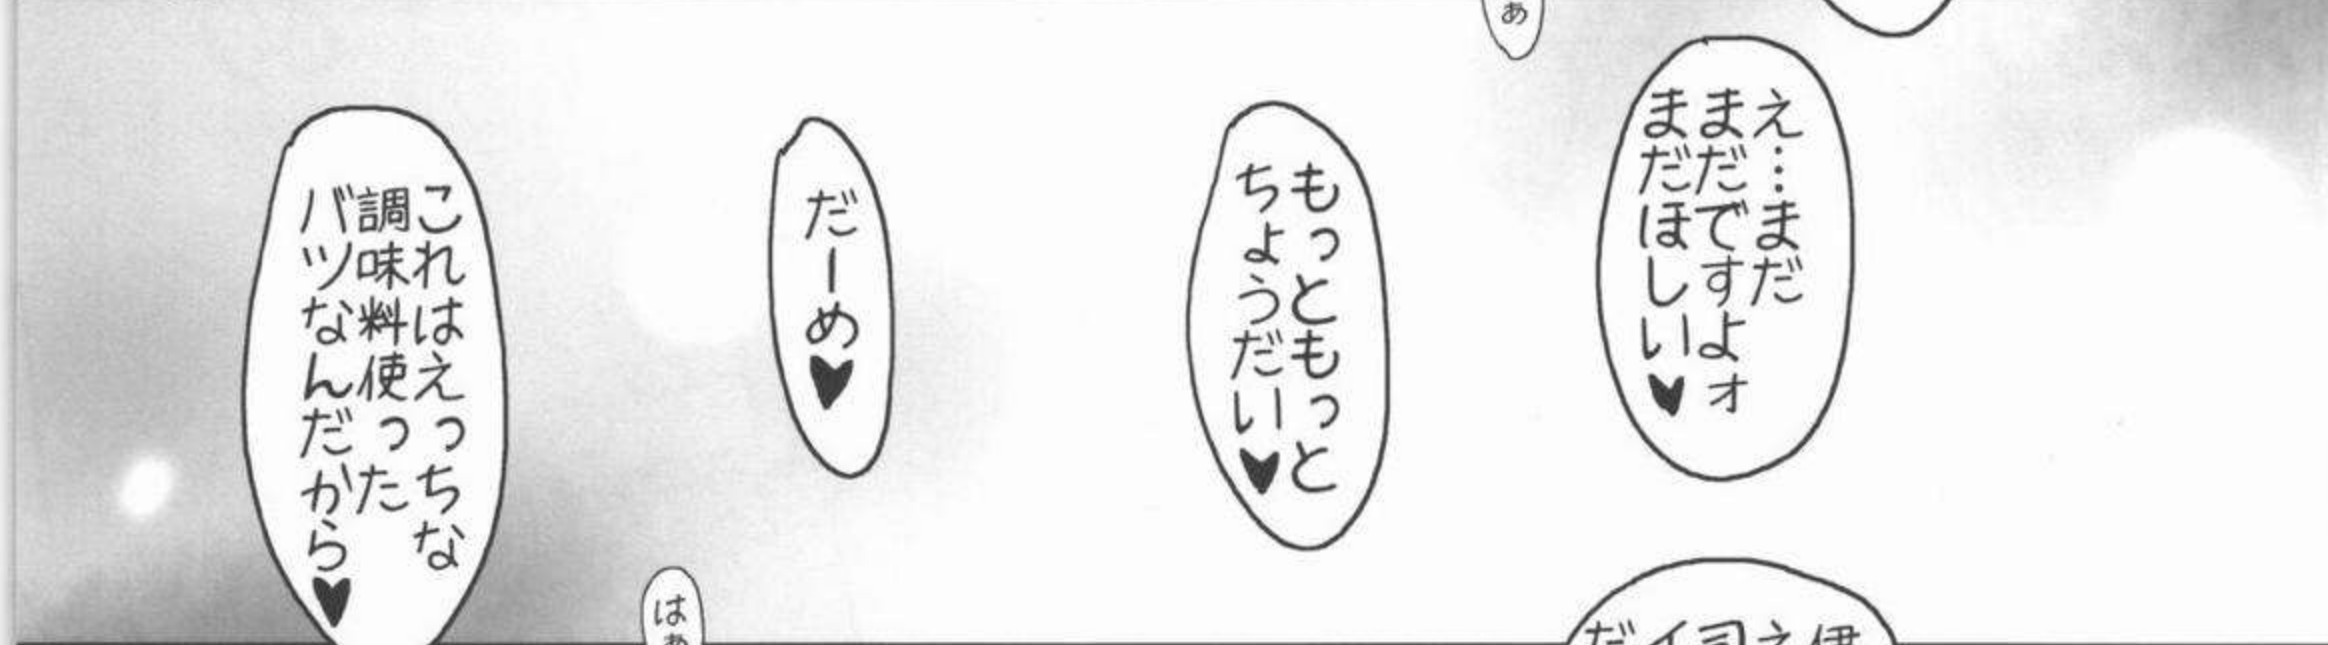 ぁ
え…まだ
まだですよォ
まだほしい♥
もっともっと
ちょうだい♥
だーめ♥
これはえっちな
調味料使った
バツなんだから♥
はぁ